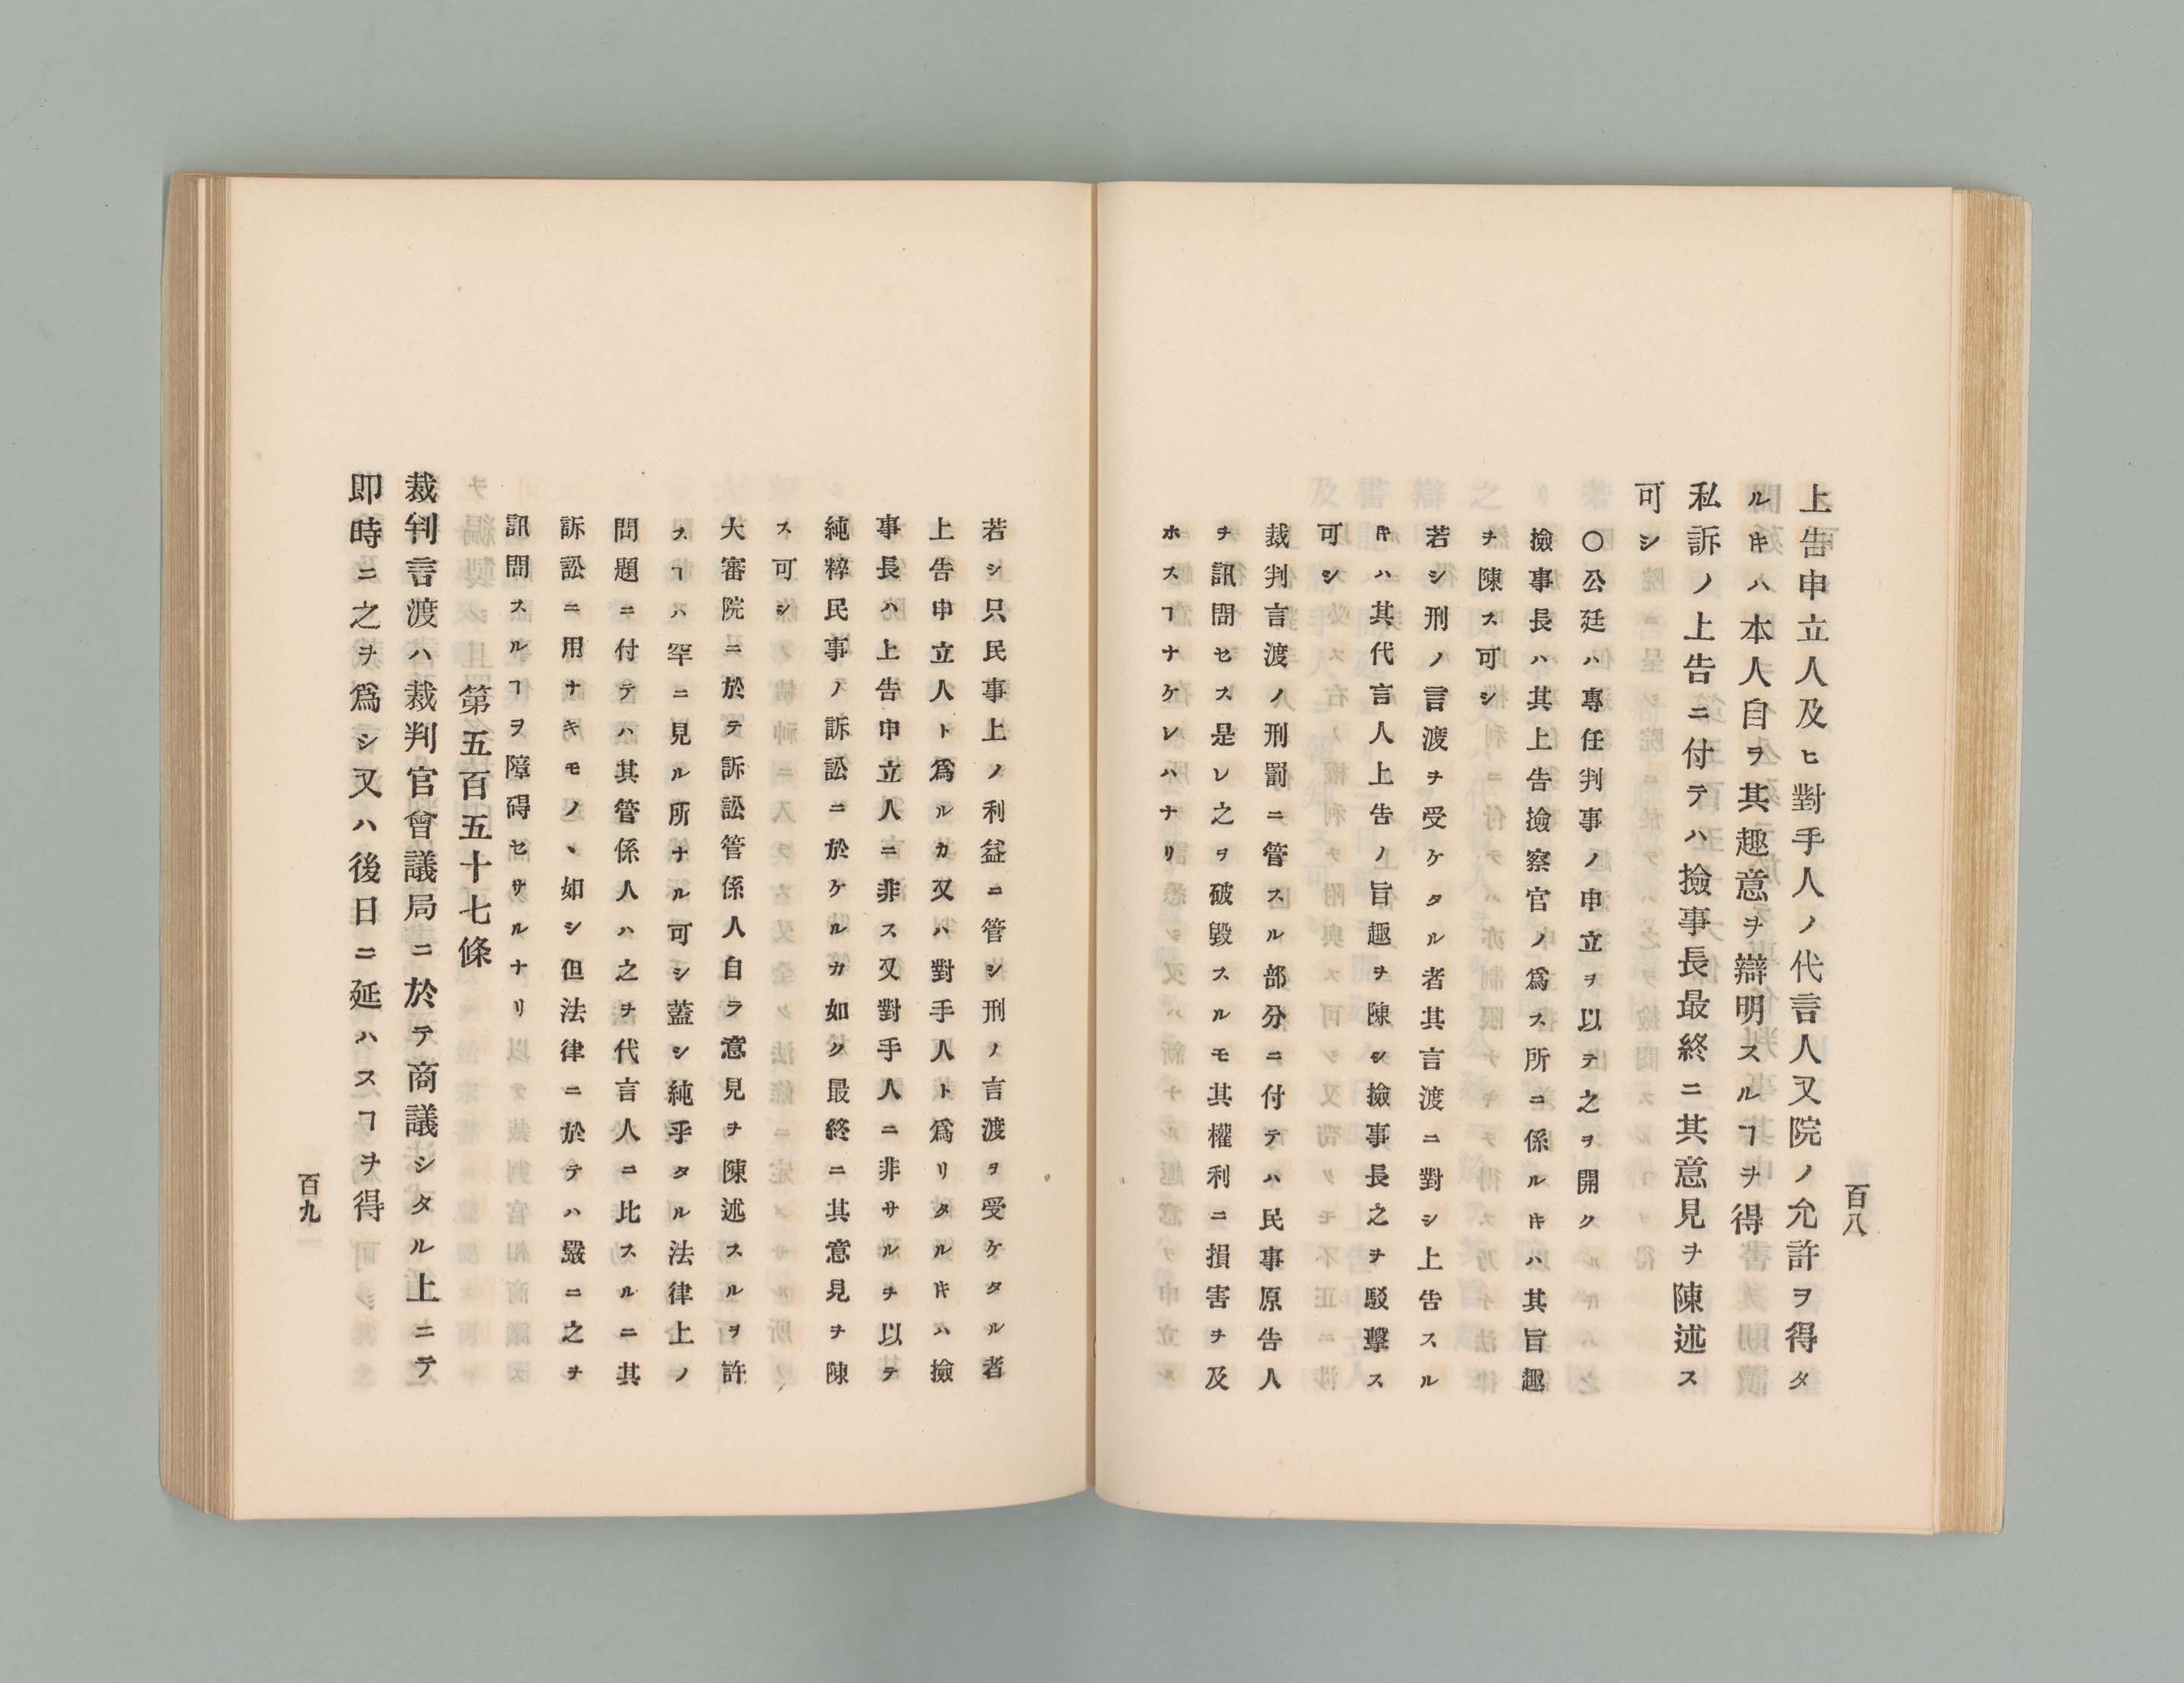 百八
上告申立人及ヒ對手人ノ代言人又院ノ允許ヲ得タ
ルキハ本人自ヲ其趣意ヲ辯明スルヿヲ得
私訴ノ上告ニ付テハ撿事長最終ニ其意見ヲ陳述ス
可シ
〇公廷ハ專任判事ノ申立ヲ以テ之ヲ開ク
撿事長ハ其上告撿察官ノ爲ス所ニ係ルキハ其旨趣
ヲ陳ス可シ
若シ刑ノ言渡ヲ受ケタル者其言渡ニ對シ上告スル
キハ其代言人上告ノ旨趣ヲ陳シ撿事長之ヲ駁擊ス
可シ
裁判言渡ノ刑罰ニ管スル部分ニ付テハ民事原告人
ヲ訊問セス是レ之ヲ破毀スルモ其權利ニ損害ヲ及
ホスヿナケレハナリ
若シ只民事上ノ利益ニ管シ刑ノ言渡ヲ受ケタル者
上告申立人ト爲ルカ又ハ對手人ト爲リタルキハ撿
事長ハ上告申立人ニ非ス又對手人ニ非サルヲ以テ
純粹民事ノ訴訟ニ於ケルカ如ク最終ニ其意見ヲ陳
ス可シ
大審院ニ於テ訴訟管係人自ラ意見ヲ陳述スルヲ許
スヿハ罕ニ見ル所ナル可シ蓋シ純乎タル法律上ノ
問題ニ付テハ其管係人ハ之ヲ代言人ニ比スルニ其
訴訟ニ用ナキモノヽ如シ但法律ニ於テハ嚴ニ之ヲ
訊問スルヿヲ障碍セサルナリ
第五百五十七條
裁判言渡ハ裁判官會議局ニ於テ商議シタル上ニテ
即時ニ之ヲ爲シ又ハ後日ニ延ハスヿヲ得
百九